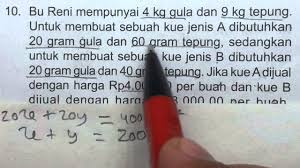 10. Bu Reni mempunyai 4 kg gula dan 9 kg tepung.
Untuk membuat sebuah kue jenis A dibutuhkan
20 gram gula dan 60 gram tepung, sedangkan
untuk membuat sebuah kue jenis B dibutuhkan
20 gram gula dan 40 tepung. Jika kue A dijual
dengan harga per buah dan kue B
dijual dengan harga 3.000,00 per buah
20x + 20y = 
x + y = 200